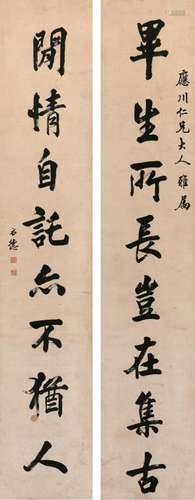 應川仁兄大人雅屬
畢生所長豈在集古
閒情自託亦不猶人